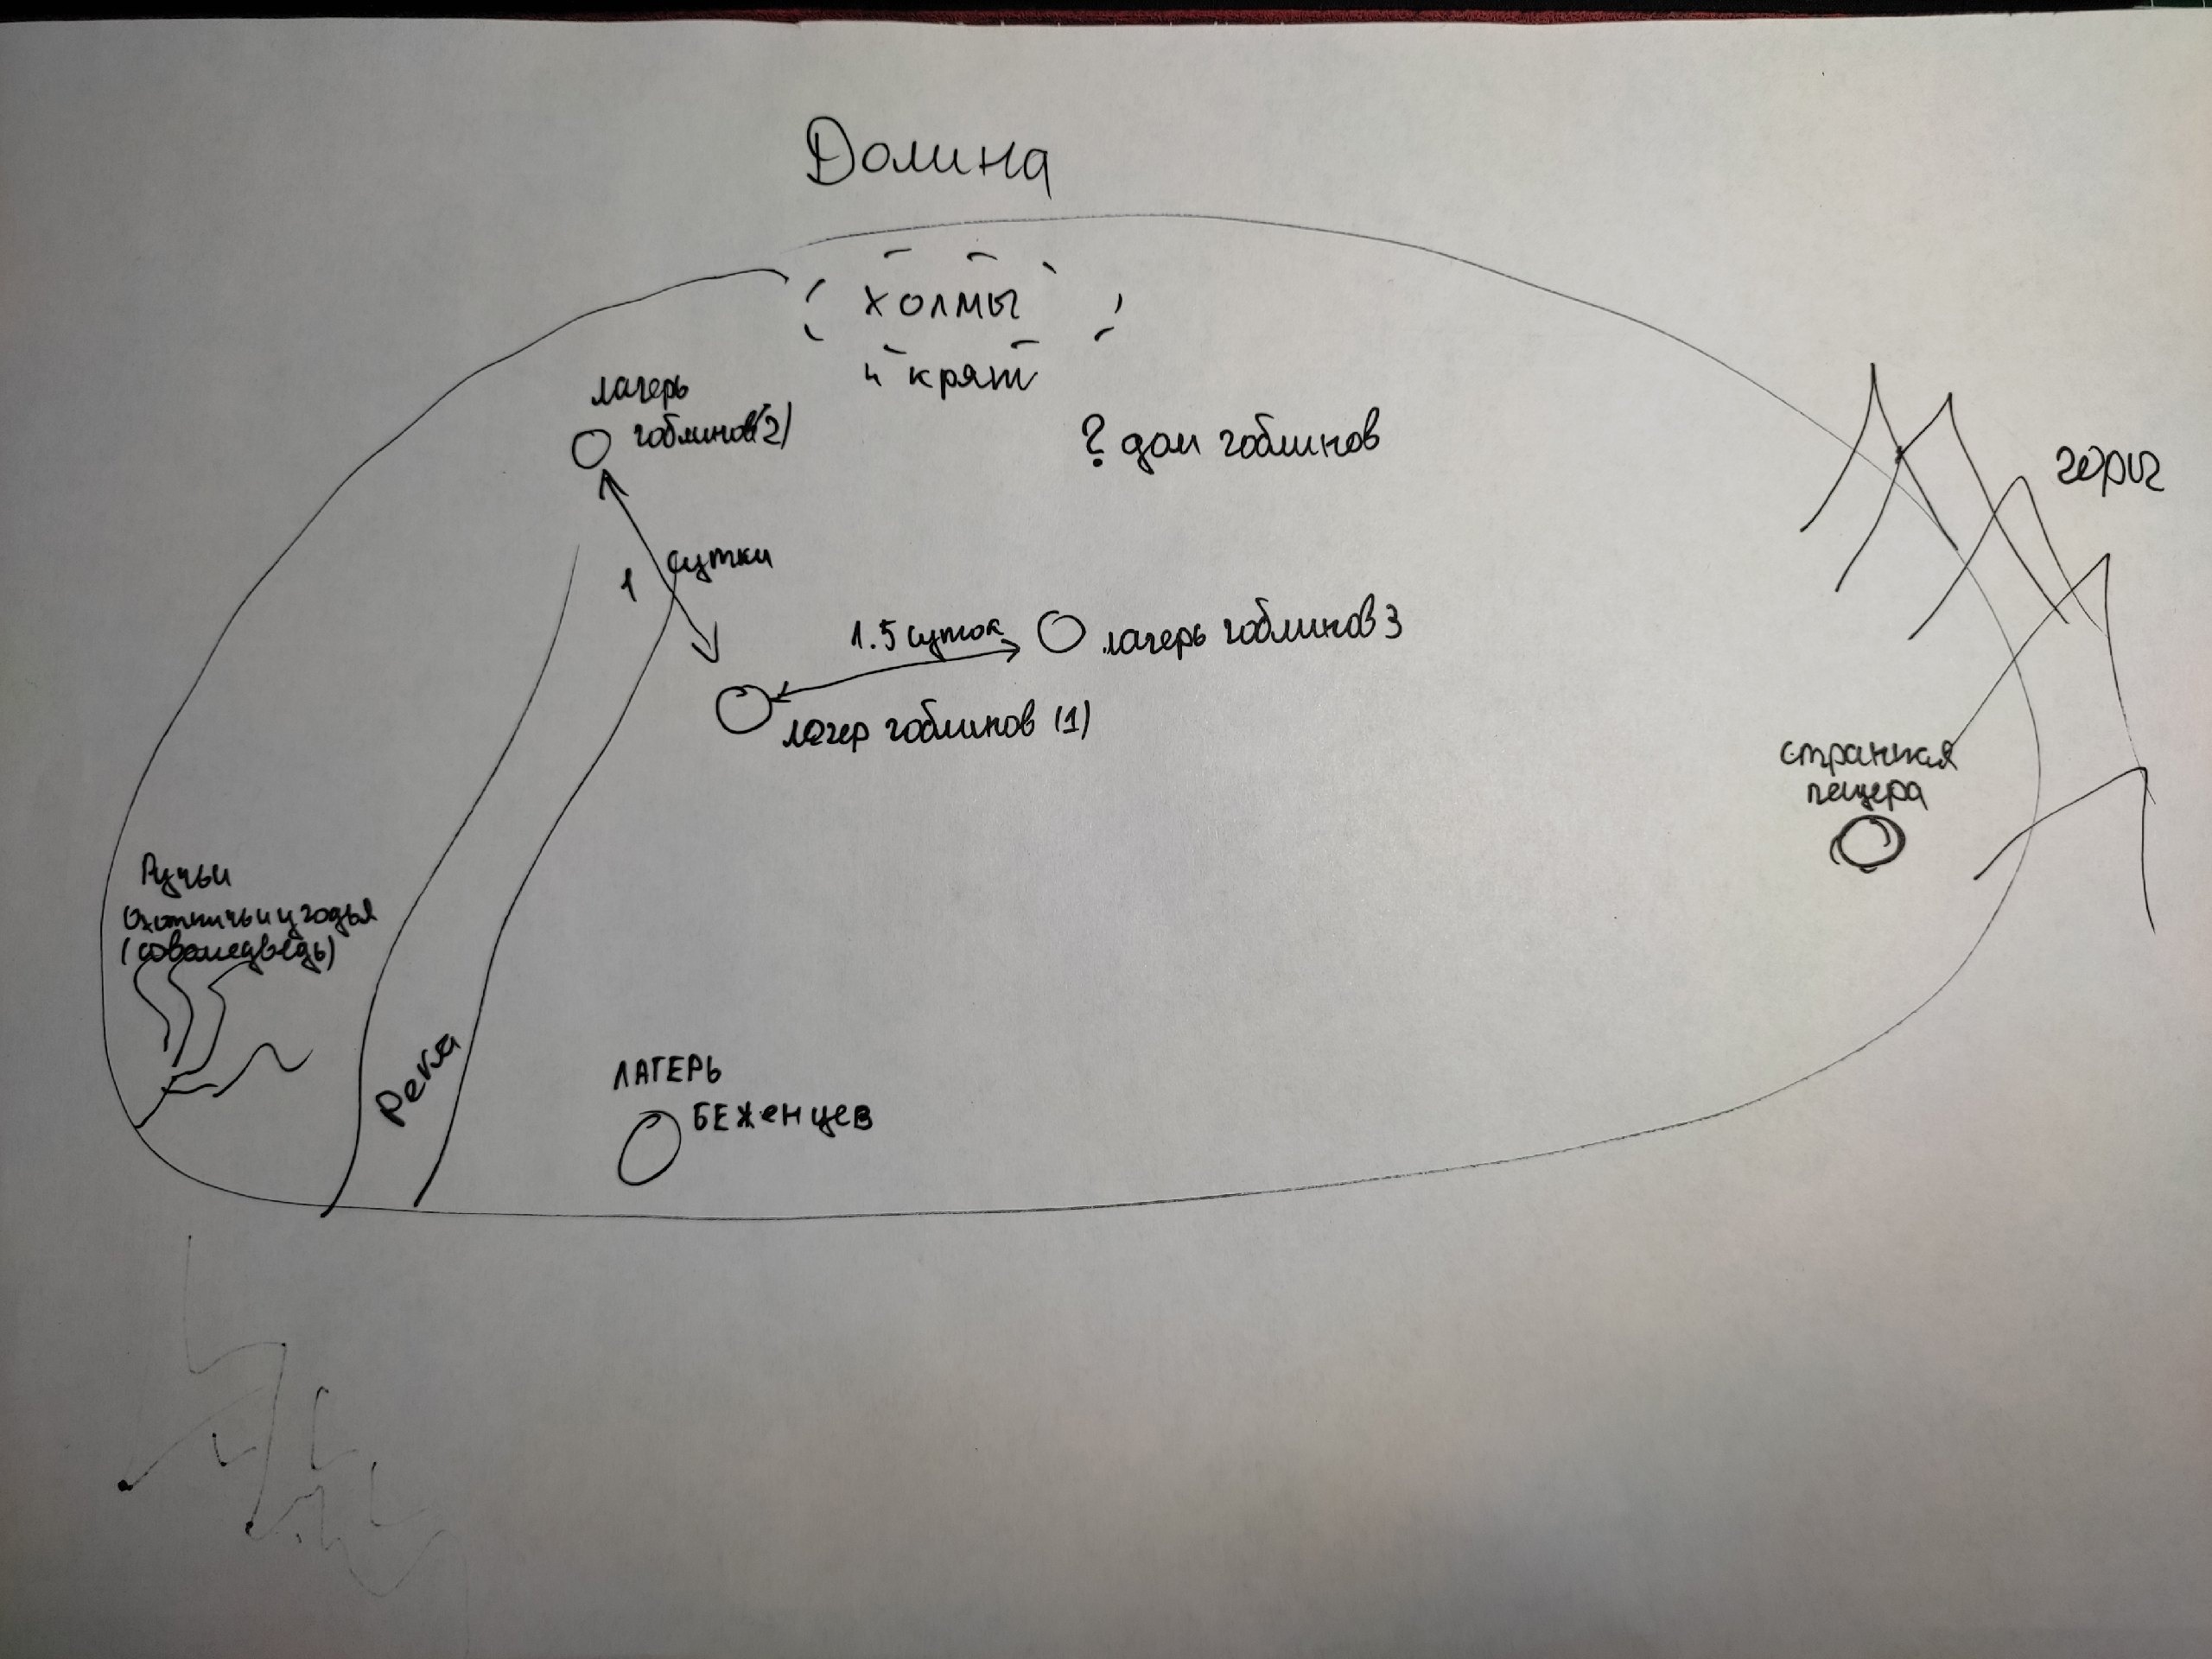 Долина
холмы
и кряж
лагерь
гоблинов(2)
? дом гоблинов
горы
1 сутки
1.5 суток
лагерь гоблинов 3
лагер гоблинов (1)
странная
пещера
Ручьи
Охотничьи угодья
(совомедведь)
Река
ЛАГЕРЬ
БЕЖЕНЦЕВ